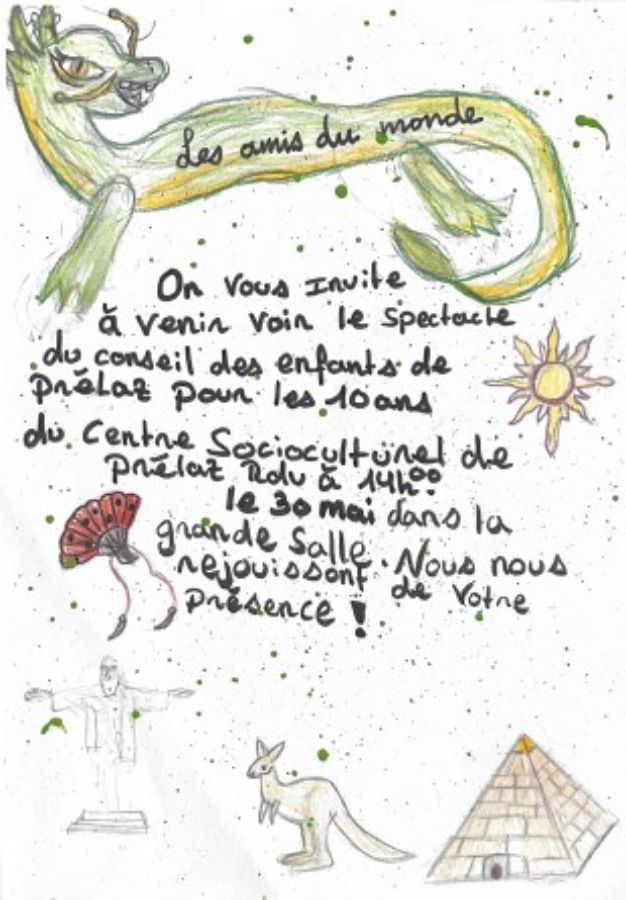 Les amis du monde
On vous invite
à venir voir le spectacle
du conseil des enfants de
prélaz pour les 10 ans
du Centre Socioculturel de
prélaz Rdv à 14h00
le 30 mai dans la
grande Salle. Nous nous
rejouissont de Votre
présence !